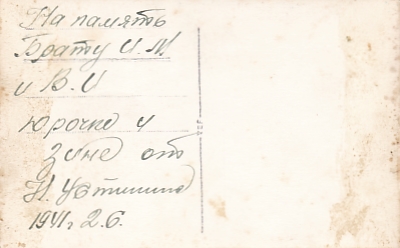 На память
Брату И. М
и В. И
Юрочке и
Зине от
Н. Устинина
1941 г 2.6.